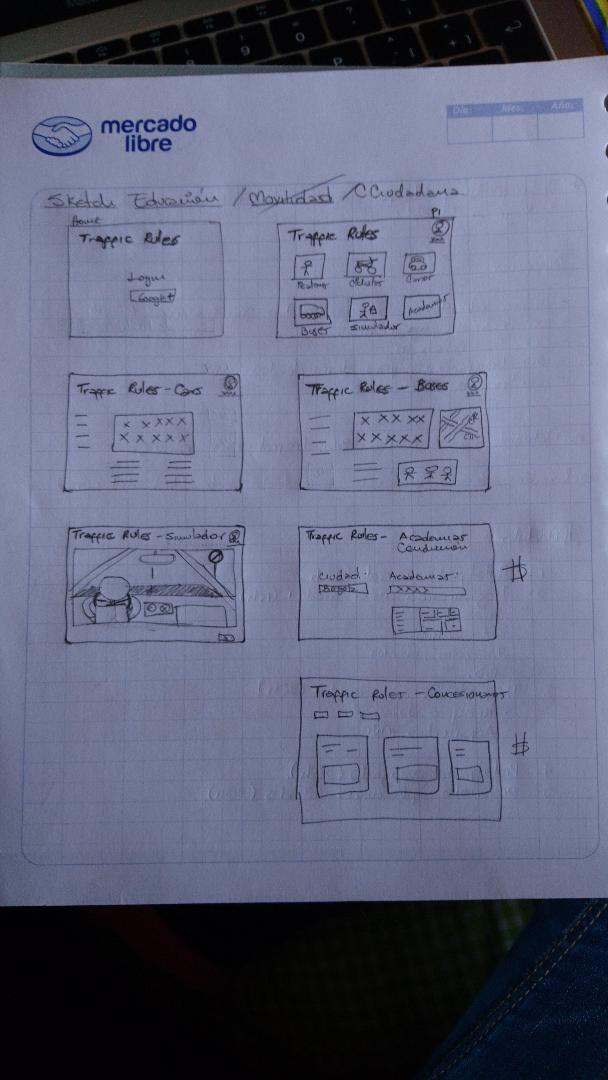 mercado
libre
Día: Mes: Año:
Sketch Educación / Movilidad / CCiudadana
Home
Traffic Rules
Login
Google+
P1
Traffic Rules
Carros
Buses
Simulador
Academias
Traffic Rules - Cars
Traffic Rules - Buses
x x x x x
x x x x x
x x x x x
x x x x x
Traffic Rules - Simulador
Traffic Rules - Academias
Conducción
Ciudad:
Academias:
Bogotá
xxxx
$
Traffic Rules - Concesionarios
$